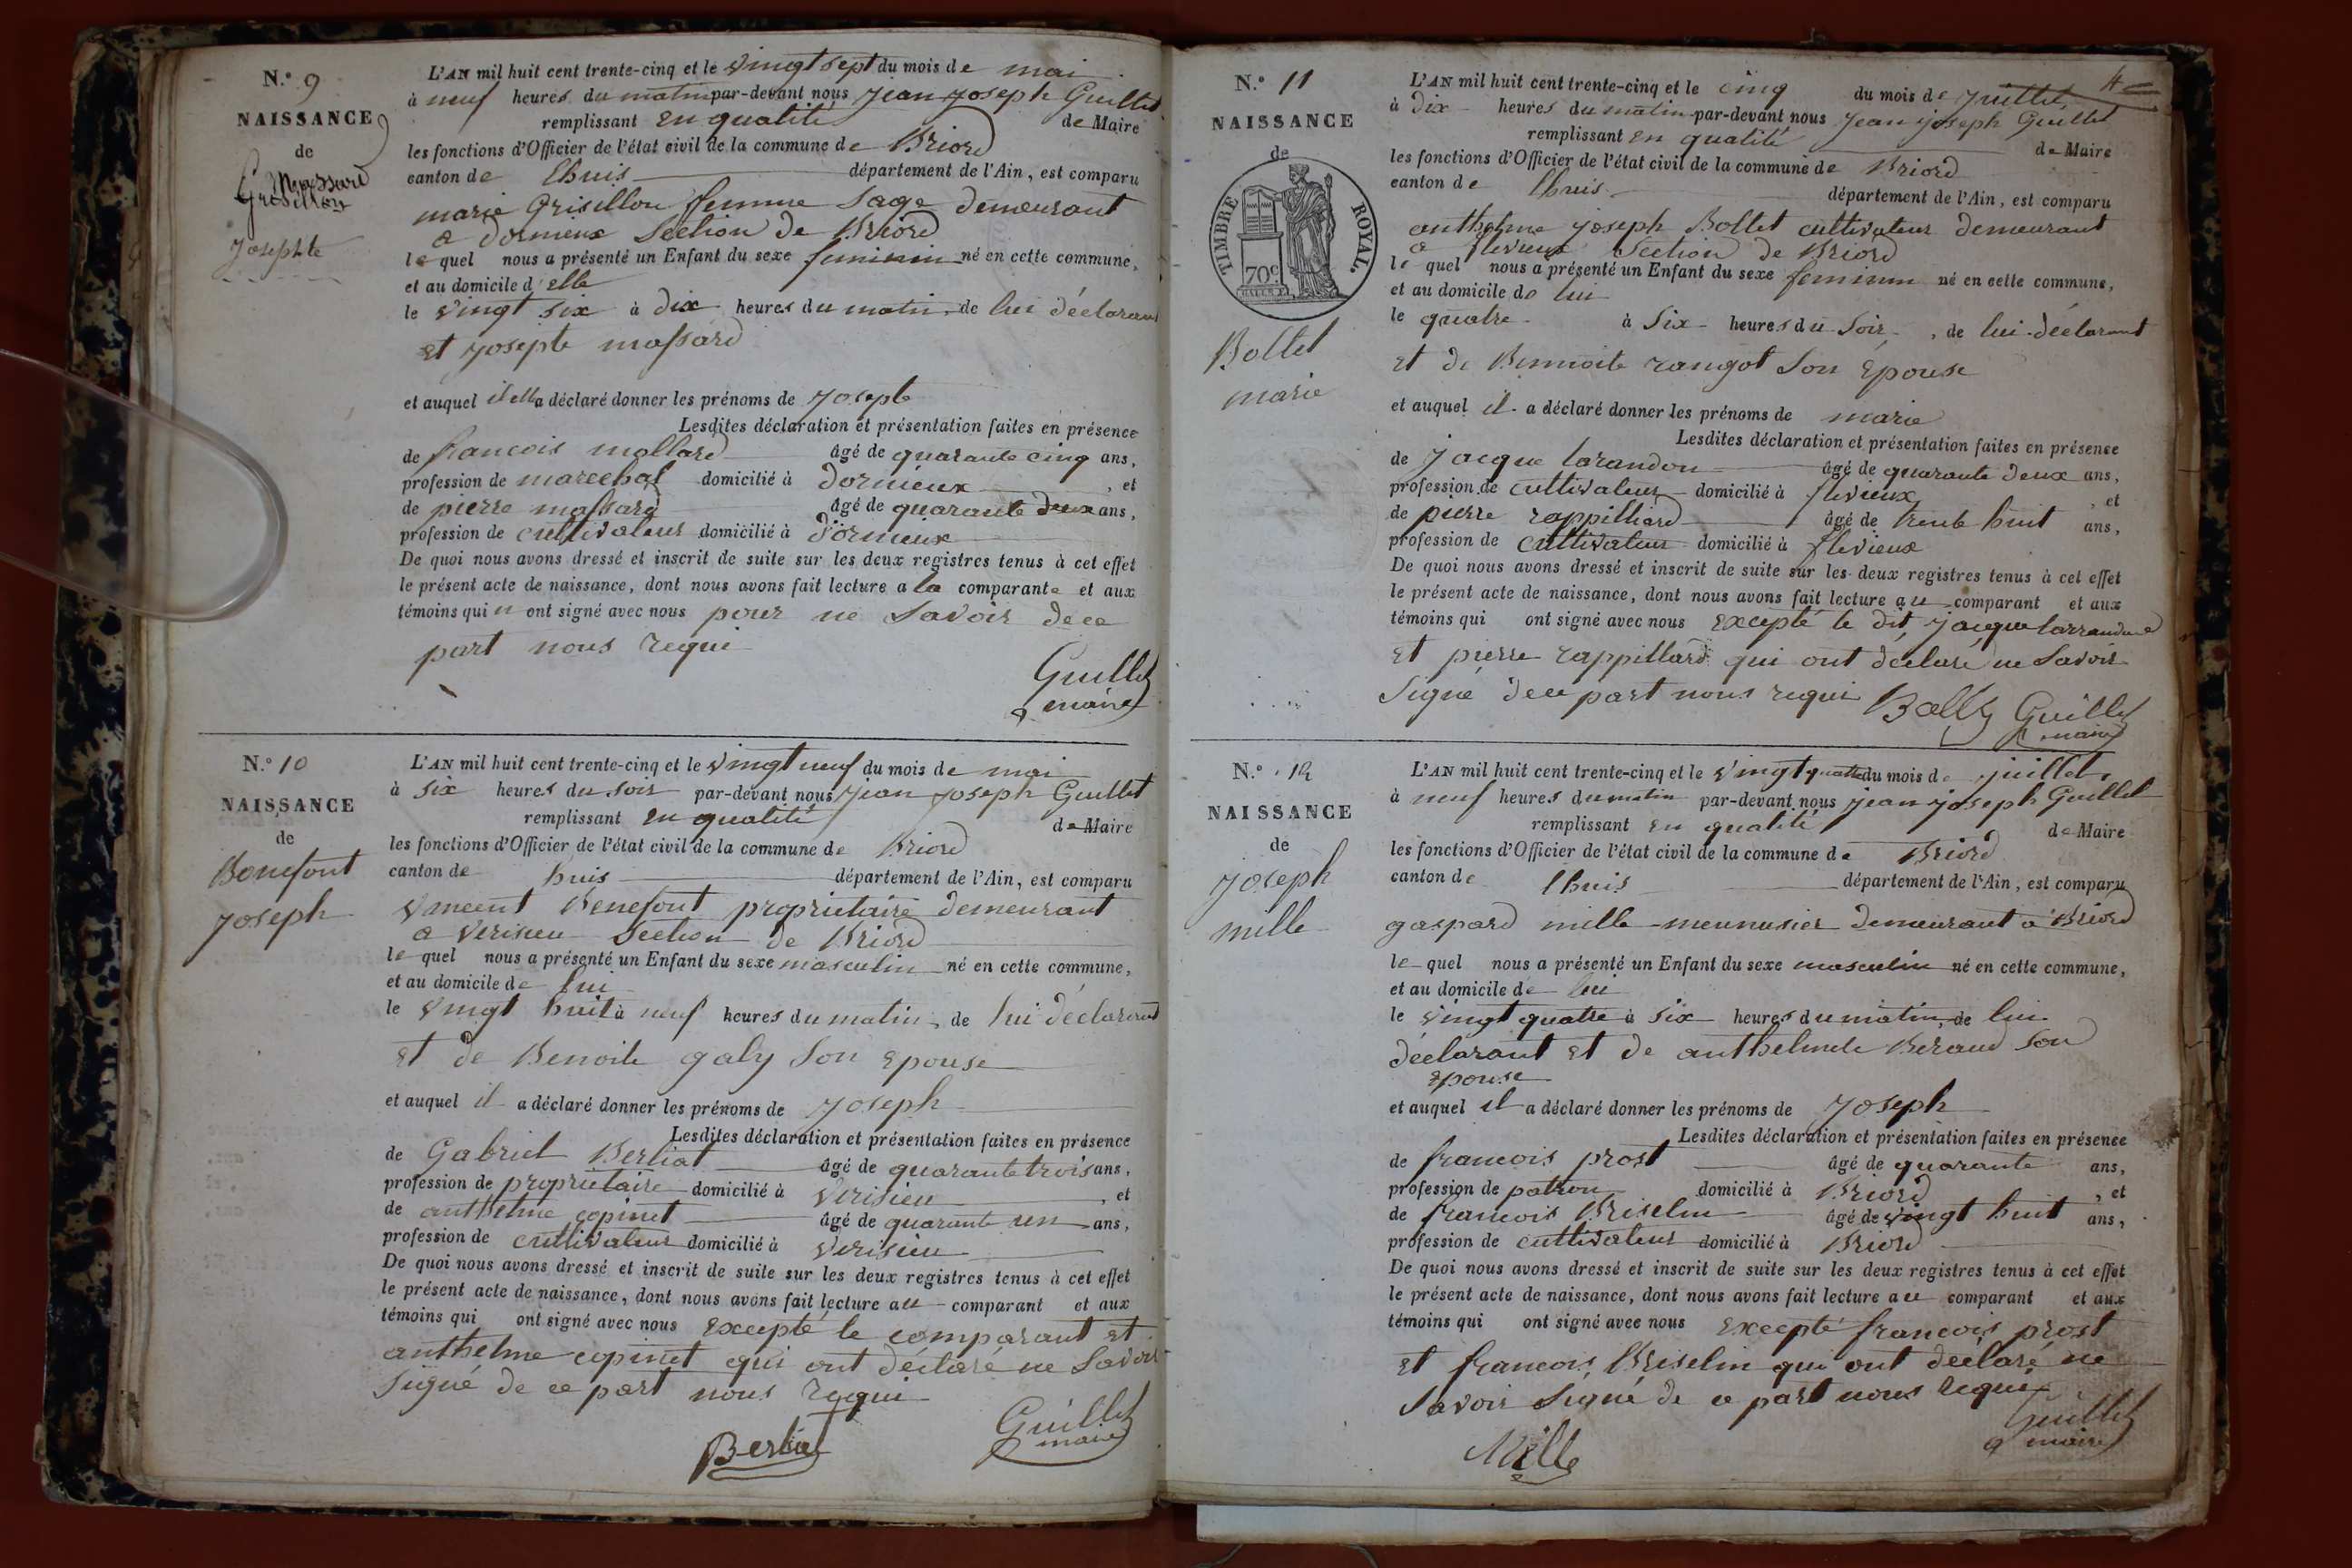 N.º 9
NAISSANCE
de
Massard
Grosillon
Josephte
L'AN mil huit cent trente-cinq et le vingt sept du mois de mai
à neuf heures du matin par-devant nous Jean Joseph Guillet
remplissant en qualité de Maire
les fonctions d'Officier de l'état civil de la commune de Briord
canton de lhuis département de l'Ain, est comparu
marie Grisillon femme sage demeurant
a dornieux Section de Briord
lequel nous a présenté un Enfant du sexe feminin né en cette commune,
et au domicile d'elle
le vingt six à dix heures du matin, de lui déclarant
et josepte massard
et auquel il ella a déclaré donner les prénoms de Josepte
Lesdites déclaration et présentation faites en présence
de francois mollard âgé de quarante cinq ans,
profession de marechal domicilié à dornieux, et
de pierre massard âgé de quarante deux ans,
profession de cultivateur domicilié à dornieux
De quoi nous avons dressé et inscrit de suite sur les deux registres tenus à cet effet
le présent acte de naissance, dont nous avons fait lecture a la comparante et aux
témoins qui n ont signé avec nous pour ne savoir de ce
part nous requi
Guillet
maire
N.º 10
NAISSANCE
de
Bonefont
Joseph
L'AN mil huit cent trente-cinq et le vingt neuf du mois de mai
à six heures du soir par-devant nous Jean Joseph Guillet
remplissant en qualité de Maire
les fonctions d'Officier de l'état civil de la commune de Briord
canton de huis département de l'Ain, est comparu
vincent Benefont proprietaire demeurant
a verisieu Section de Briord
lequel nous a présenté un Enfant du sexe masculin né en cette commune,
et au domicile de lui
le vingt huit à neuf heures du matin, de lui déclarant
et de Benoite galy son epouse
et auquel il a déclaré donner les prénoms de Joseph
Lesdites déclaration et présentation faites en présence
de Gabriel Berliat âgé de quarante trois ans,
profession de proprietaire domicilié à verisieu, et
de anthelme copinet âgé de quarante un ans,
profession de cultivateur domicilié à verisieu
De quoi nous avons dressé et inscrit de suite sur les deux registres tenus à cet effet
le présent acte de naissance, dont nous avons fait lecture au comparant et aux
témoins qui ont signé avec nous excepté le comparant et
anthelme copinet qui ont déclaré ne savoir
signé de ce part nous requi
Berliat
Guillet
maire
4
N.º 11
NAISSANCE
de
TIMBRE ROYAL
70c
Bollet
marie
L'AN mil huit cent trente-cinq et le cinq du mois de juillet
à dix heures du matin par-devant nous Jean Joseph Guillet
remplissant en qualité de Maire
les fonctions d'Officier de l'état civil de la commune de Briord
canton de lhuis département de l'Ain, est comparu
anthelme joseph Bollet cultivateur demeurant
a flevieux Section de Briord
lequel nous a présenté un Enfant du sexe feminin né en cette commune,
et au domicile de lui
le quatre à six heures du soir, de lui déclarant
et de Bennoite rangot son epouse
et auquel il a déclaré donner les prénoms de marie
Lesdites déclaration et présentation faites en présence
de Jacque larandon âgé de quarante deux ans,
profession de cultivateur domicilié à flevieux, et
de pierre rappilliard âgé de trente huit ans,
profession de cultivateur domicilié à flevieux
De quoi nous avons dressé et inscrit de suite sur les deux registres tenus à cet effet
le présent acte de naissance, dont nous avons fait lecture au comparant et aux
témoins qui ont signé avec nous excepté le dit, Jacque
et pierre rappillard qui ont déclaré ne savoir
signé de ce part nous requi
Guillet
maire
N.º 12
NAISSANCE
de
Joseph
mille
L'AN mil huit cent trente-cinq et le vingt quatre du mois de juillet
à neuf heures du matin par-devant nous jean joseph Guillet
remplissant en qualité de Maire
les fonctions d'Officier de l'état civil de la commune de Briord
canton de lhuis département de l'Ain, est comparu
gaspard mille menusier demeurant a Briord
lequel nous a présenté un Enfant du sexe masculin né en cette commune,
et au domicile de lui
le vingt quatre à six heures du matin, de lui
déclarant et de anthelmele Beraud son
epouse
et auquel il a déclaré donner les prénoms de Joseph
Lesdites déclaration et présentation faites en présence
de francois prost âgé de quarante ans,
profession de patron domicilié à Briord, et
de francois Briselin âgé de vingt huit ans,
profession de cultivateur domicilié à Briord
De quoi nous avons dressé et inscrit de suite sur les deux registres tenus à cet effet
le présent acte de naissance, dont nous avons fait lecture au comparant et aux
témoins qui ont signé avec nous excepté francois prost
et francois Briselin qui ont déclaré ne
savoir signé de ce part nous requi
Mille
Guillet
maire